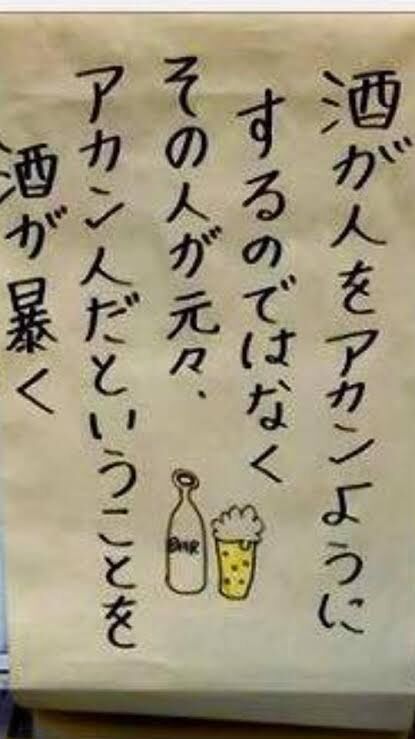 酒が人をアカンように
するのではなく
その人が元々、
アカン人だということを
酒が暴く
BEER